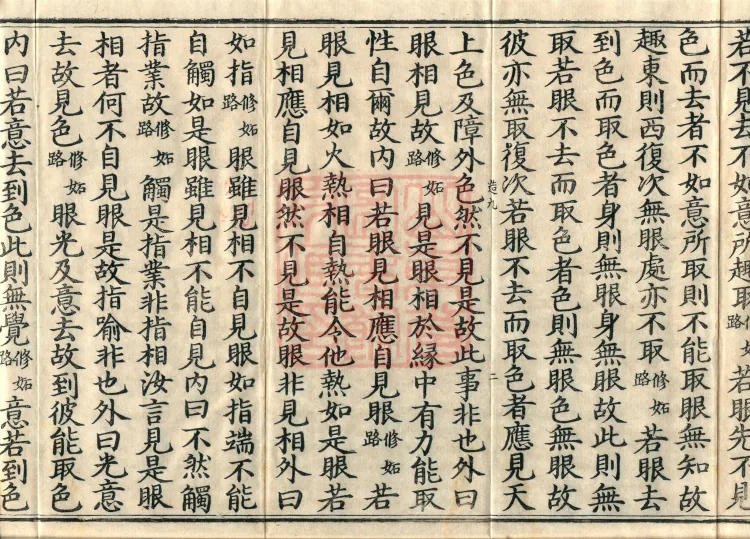 若不見去不如意所趣取修妬路若眼先不見
色而去者不如意所取則不能取眼無知故
趣東則西復次無眼處亦不取修妬路若眼去
到色而取色者身則無眼身無眼故此則無
取若眼不去而取色者色則無眼色無眼故
彼亦無取復次若眼不去而取色者應見天
造九 二
上色及障外色然不見是故此事非也外曰
眼相見故修妬路見是眼相於緣中有力能取
性自爾故內曰若眼見相應自見眼修妬路若
眼見相如火熱相自熱能令他熱如是眼若
見相應自見眼然不見是故眼非見相外曰
如指修妬路眼雖見相不自見眼如指端不能
自觸如是眼雖見相不能自見內曰不然觸
指業故修妬路觸是指業非指相汝言見是眼
相者何不自見眼是故指喻非也外曰光意
去故見色修妬路眼光及意去故到彼能取色
內曰若意去到色此則無覺修妬路意若到色